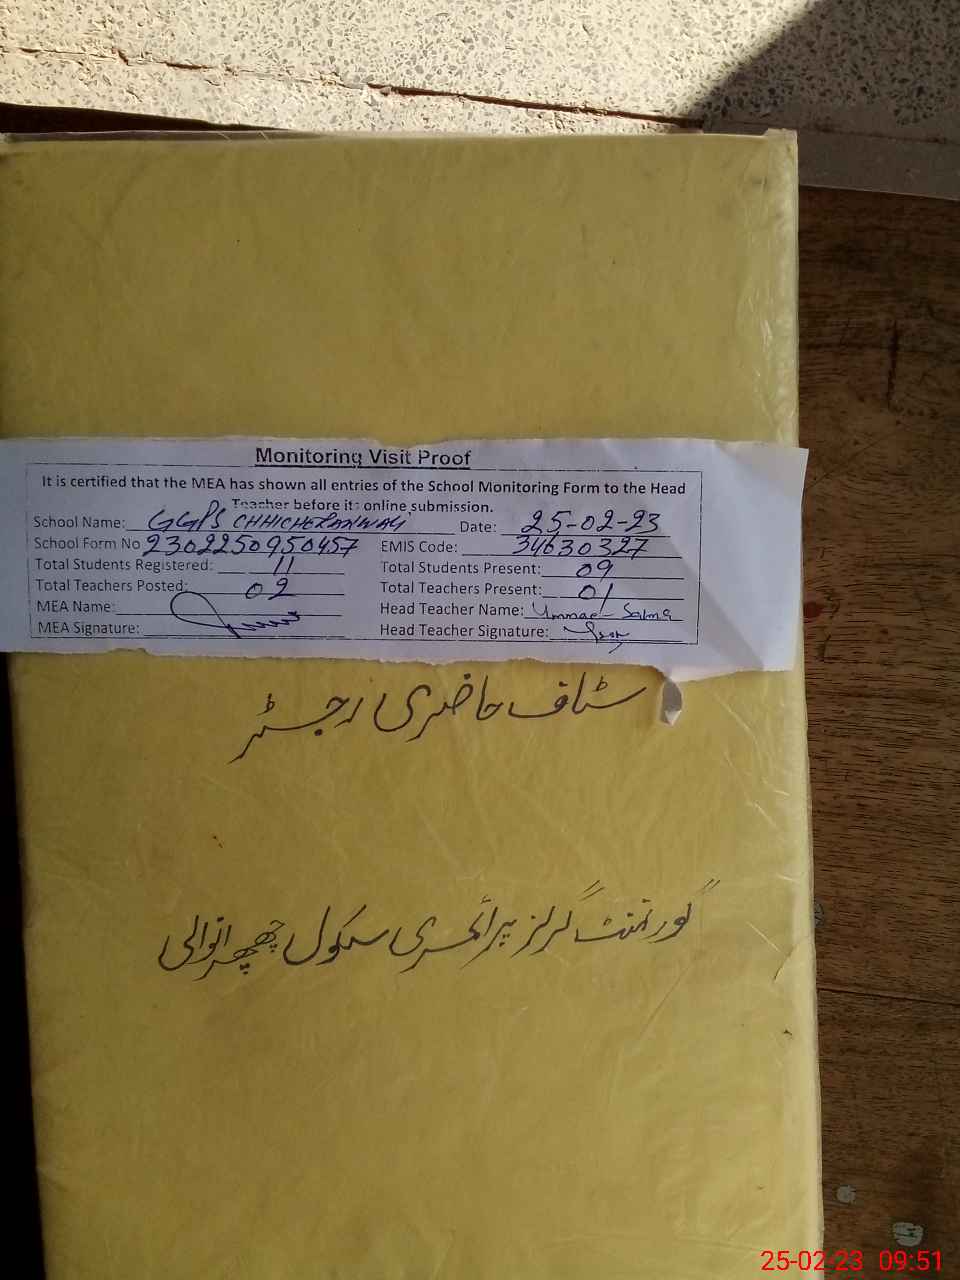 Monitoring Visit Proof
It is certified that the MEA has shown all entries of the School Monitoring Form to the Head
Teacher before its online submission.
School Name: GGPS CHHICHERANWALI Date: 25-02-23
School Form No 2302250950457 EMIS Code: 34630327
Total Students Registered: 11 Total Students Present: 09
Total Teachers Posted: 02 Total Teachers Present: 01
MEA Name: Head Teacher Name: Ummae-Salma
MEA Signature: Head Teacher Signature:
سٹاف حاضری رجسٹر
گورنمنٹ گرلز پرائمری سکول چھچھرانوالی
25-02-23 09:51